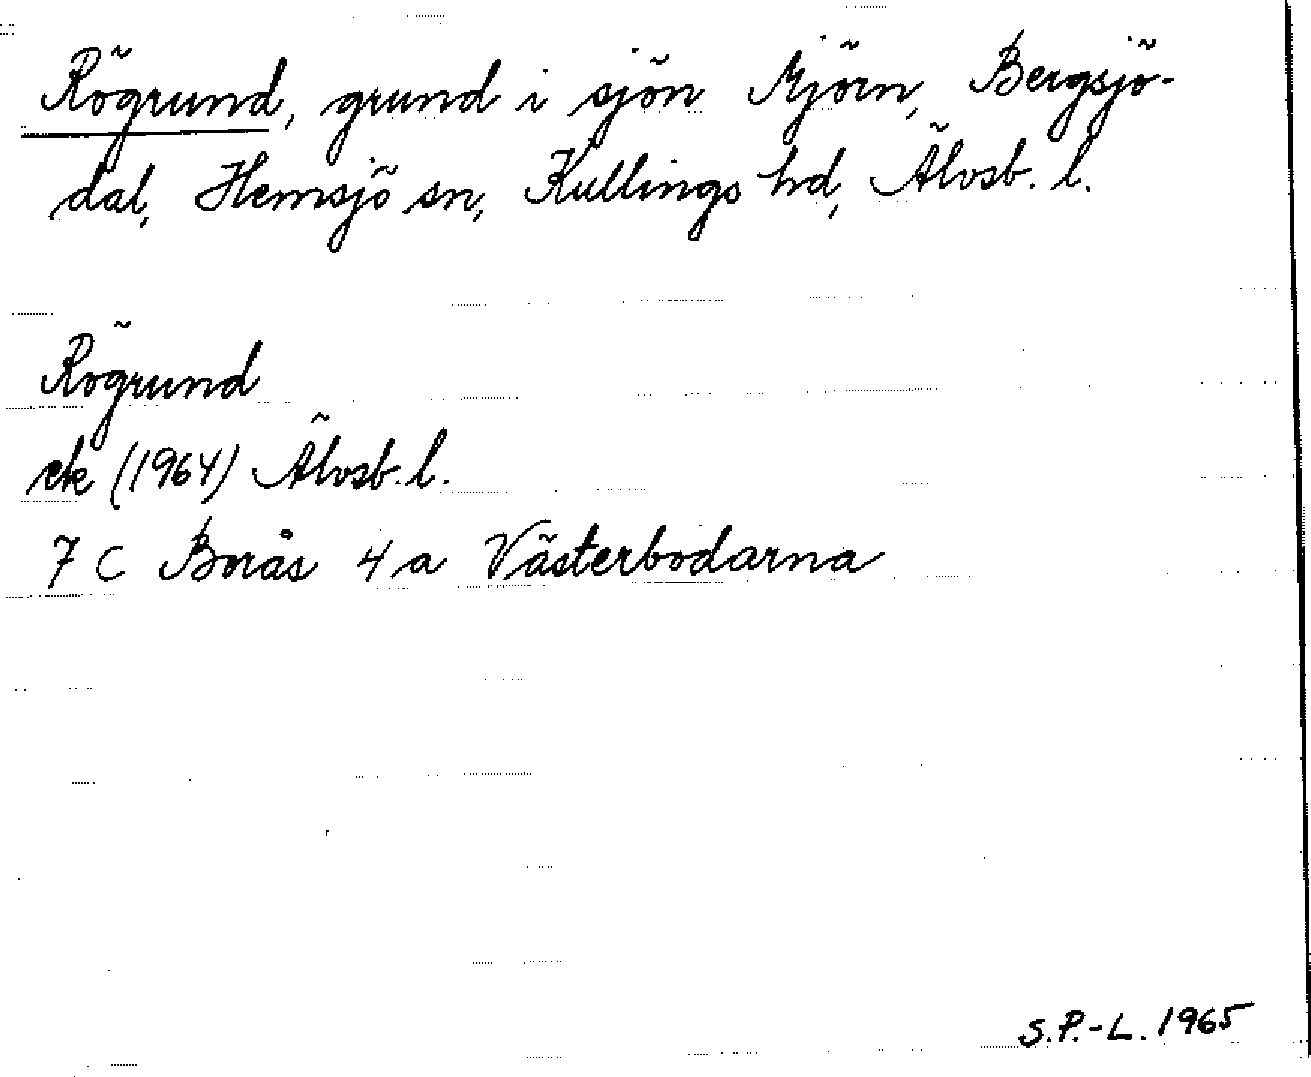 Rögrund, grund i sjön Mjörn, Bergsjö-
dal, Hemsjö sn, Kullings hd, Älvsb. l.
Rögrund
ek (1964) Älvsb. l.
7 C Borås 4 a Västerbodarna
S.P.-L. 1965